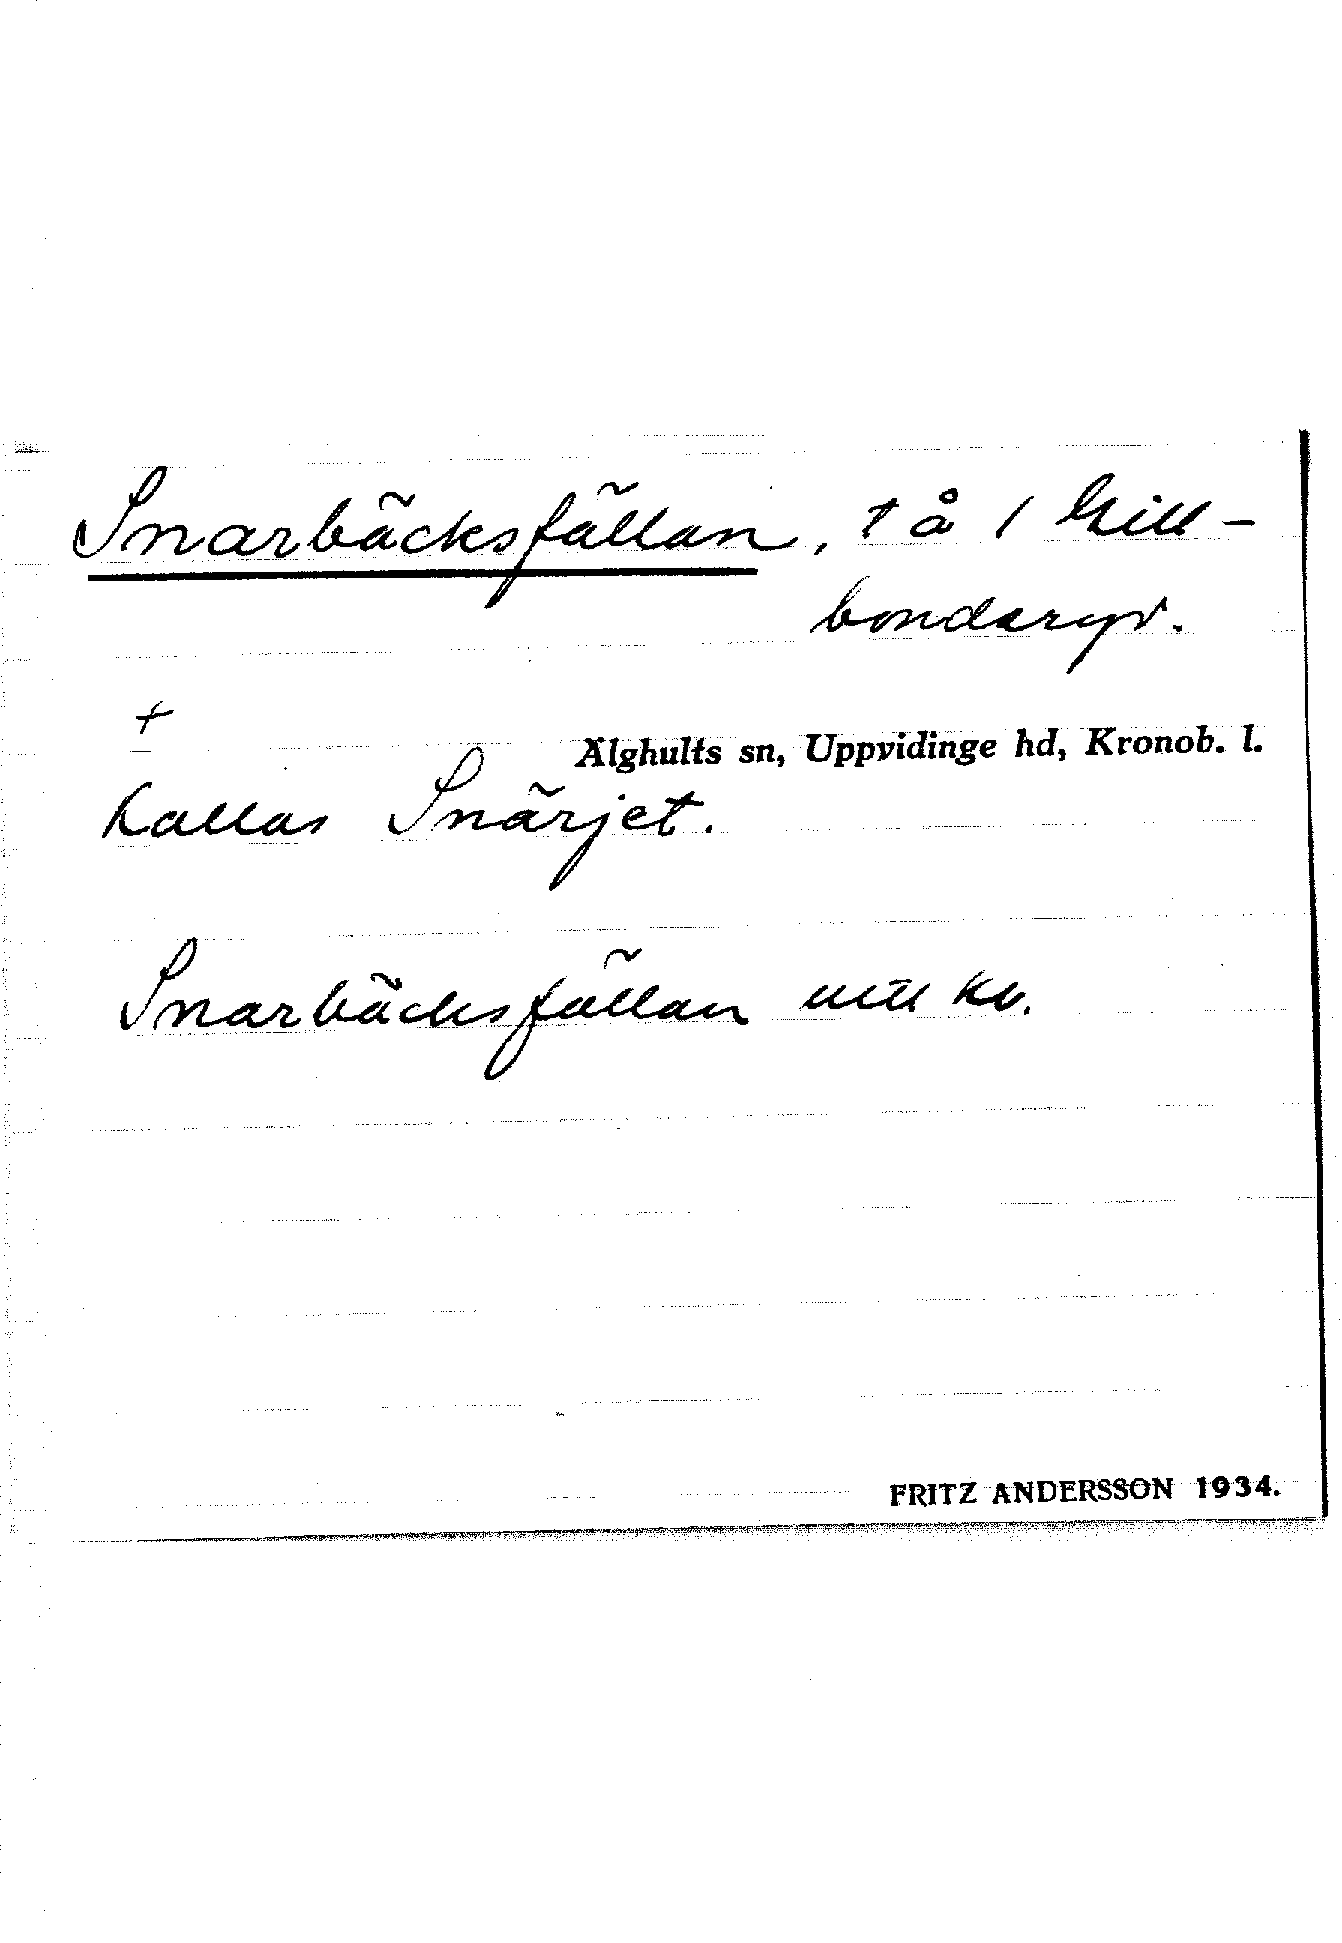 Snarbäcksfällan, t å 1 Gill-
bondaryd.
+
Älghults sn, Uppvidinge hd, Kronob. l.
Kallas Snärjet.
Snarbäcksfällan
FRITZ ANDERSSON 1934.